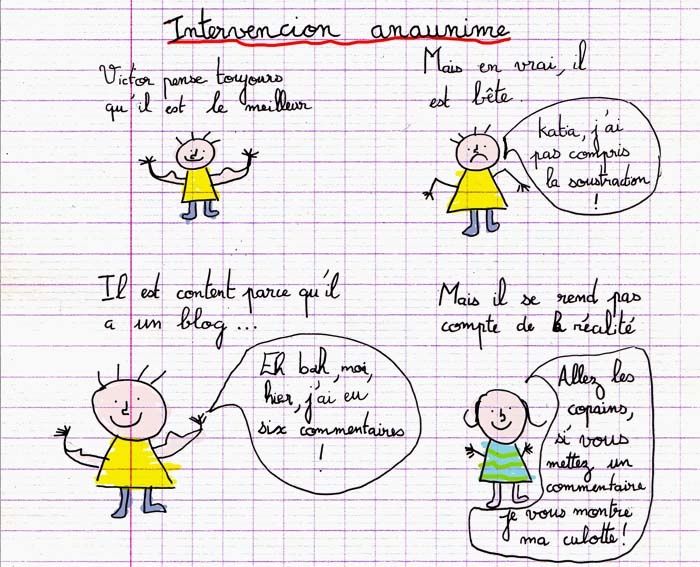 Intervencion anaunime
Victor pense toujours
qu'il est le meilleur
Mais en vrai, il
est bête.
katia, j'ai
pas compris
la soustraction
!
Il est content parce qu'il
a un blog...
Eh bah, moi,
hier, j'ai eu
six commentaires
!
Mais il se rend pas
compte de la réalité
Allez les
copains,
si vous
mettez un
commentaire
je vous montre
ma culotte!